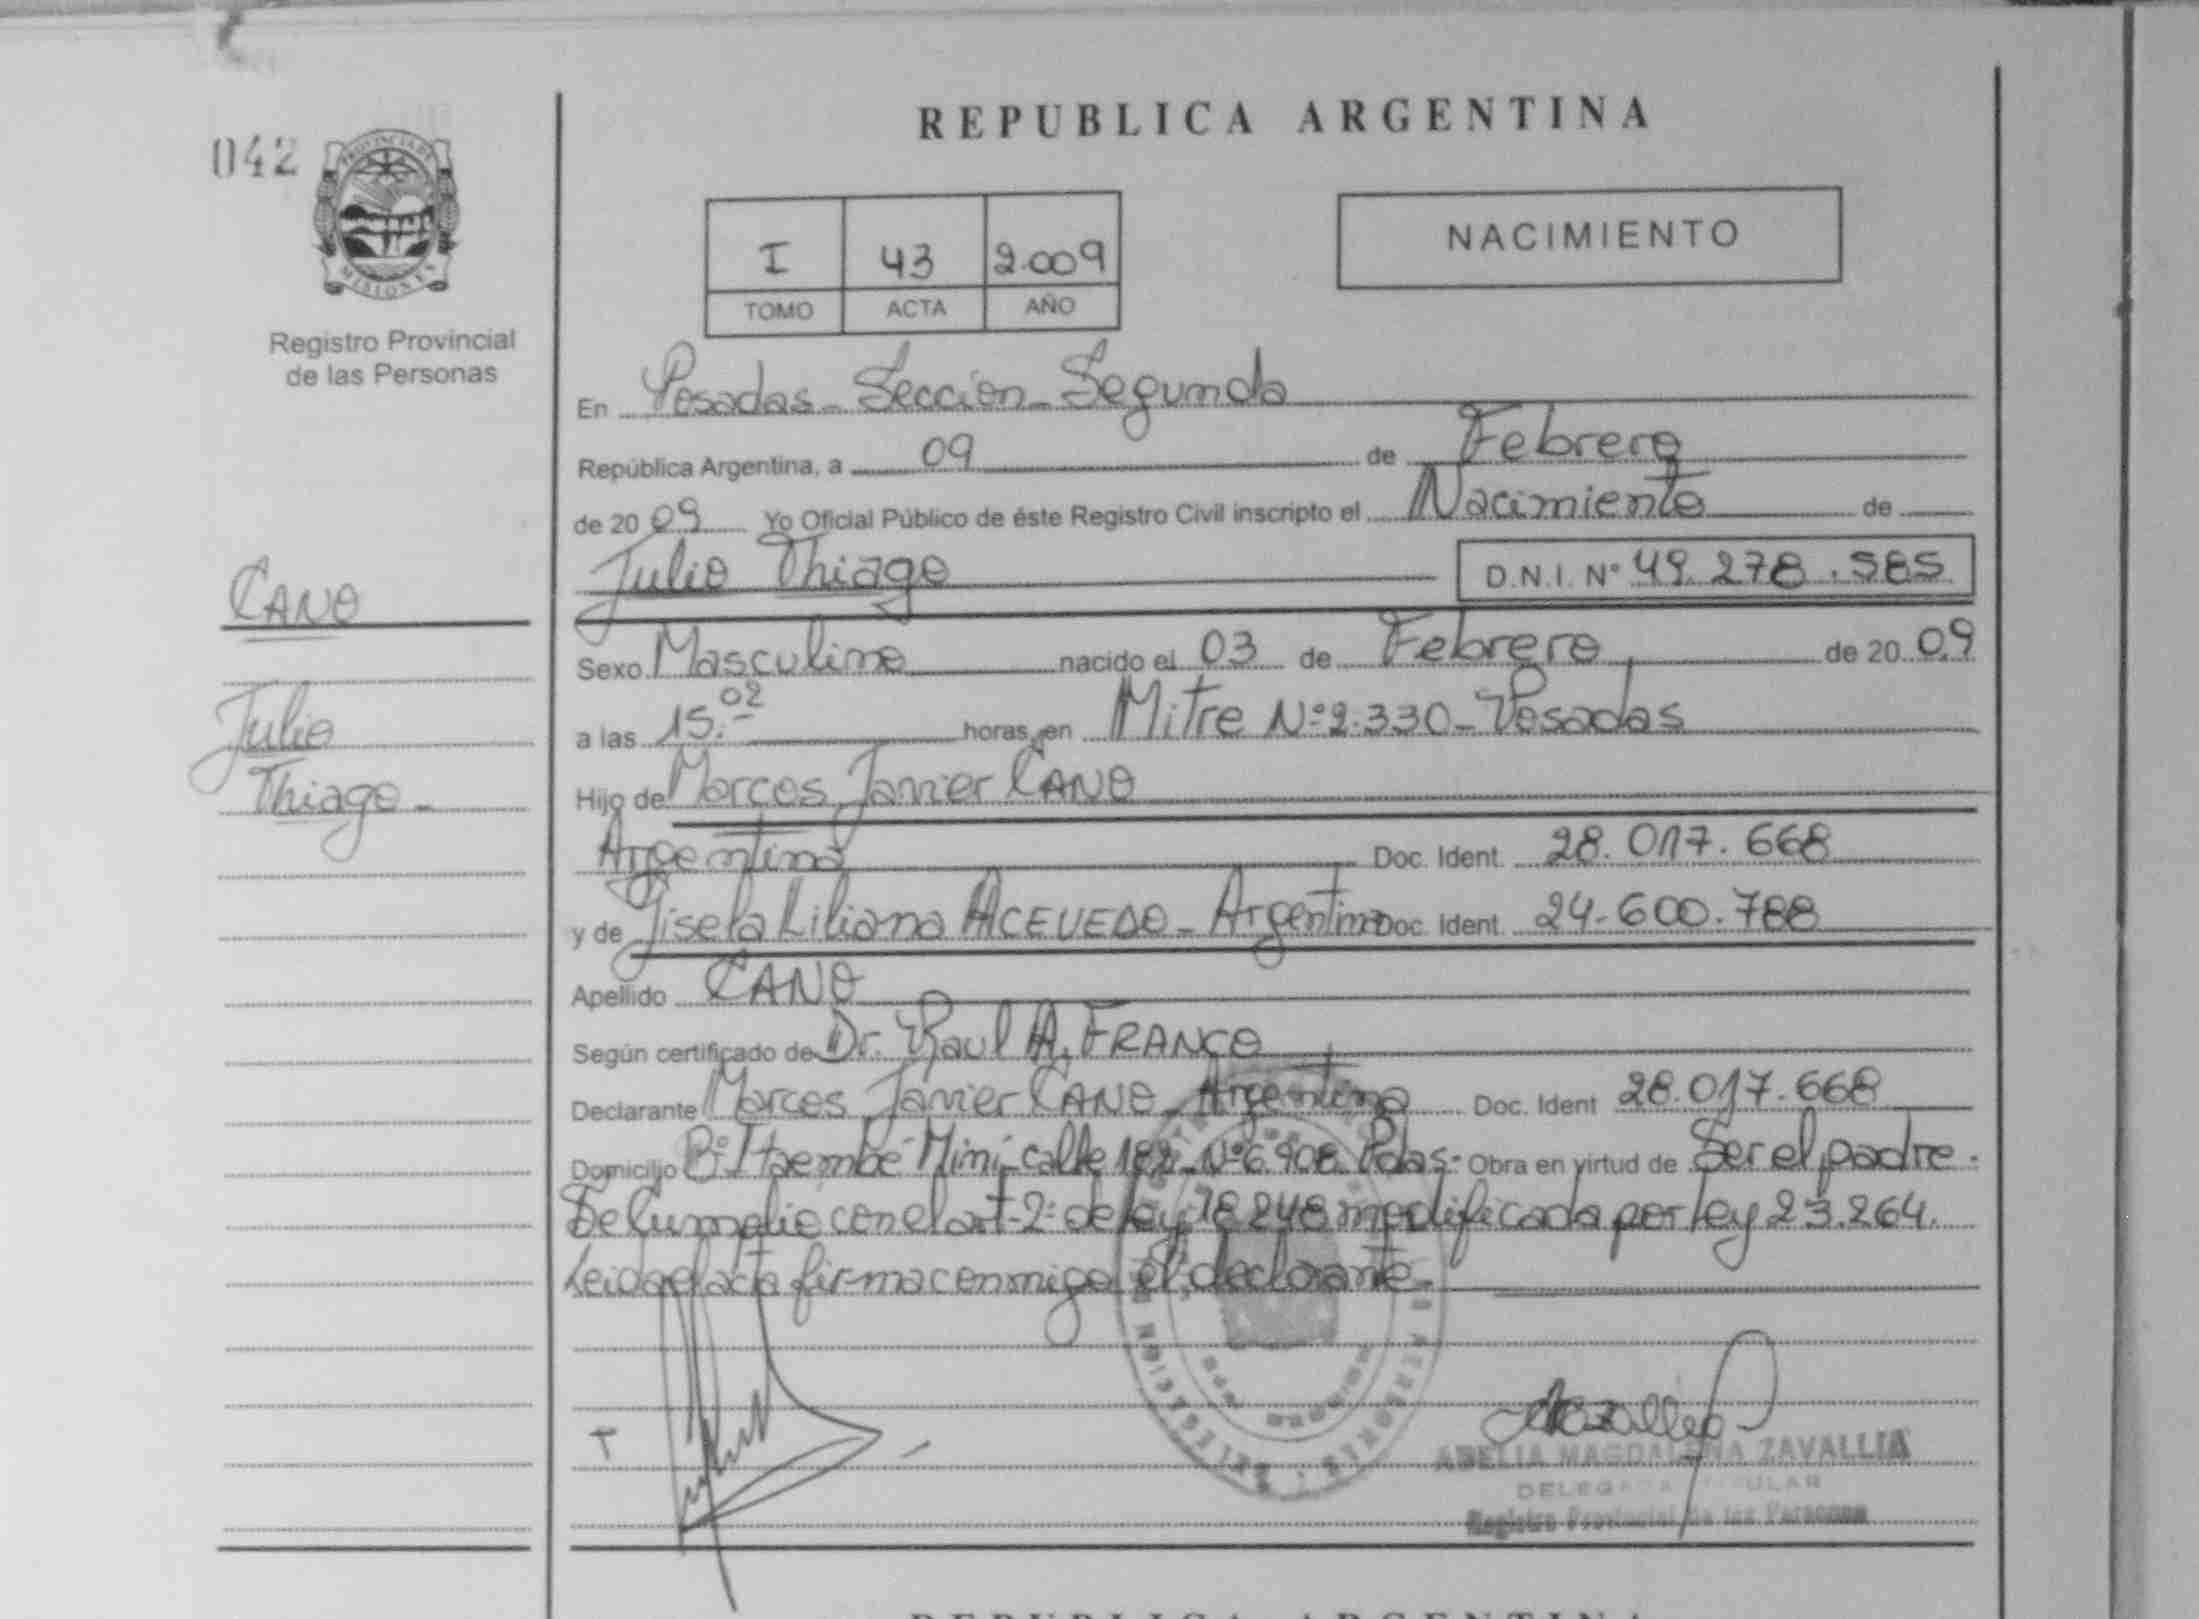 REPUBLICA ARGENTINA
042
PROVINCIA DE
MISIONES
Registro Provincial
de las Personas
I 43 2.009
TOMO ACTA AÑO
NACIMIENTO
En Posadas - Sección - Segunda
República Argentina, a 09 de Febrero
de 20 09 Yo Oficial Público de éste Registro Civil inscripto el Nacimiento de
Julio Thiago D.N.I. Nº 49.278.585
CANO
Julio
Thiago -
Sexo Masculino nacido el 03 de Febrero de 20 09
a las 15.02 horas, en Mitre Nº 2.330 - Posadas
Hijo de Marcos Javier CANO
Argentino Doc. Ident. 28.017.668
y de Gisela Liliana ACEVEDO - Argentina Doc. Ident. 24.600.788
Apellido CANO
Según certificado de Dr. Raul A. FRANCO
Declarante Marcos Javier CANO - Argentino Doc. Ident 28.017.668
Domicilio Bº Itaembé Miní - calle 182 - Nº 6.908 Pdas - Obra en virtud de Ser el padre.
Se Cumplio con el art-2º de ley 18.248 modificada por ley 23.264.
Leida el acta firma conmigo el declarante.
ABELIA MAGDALENA ZAVALLIA
DELEGADA TITULAR
Registro Provincial de las Personas
REPUBLICA ARGENTINA